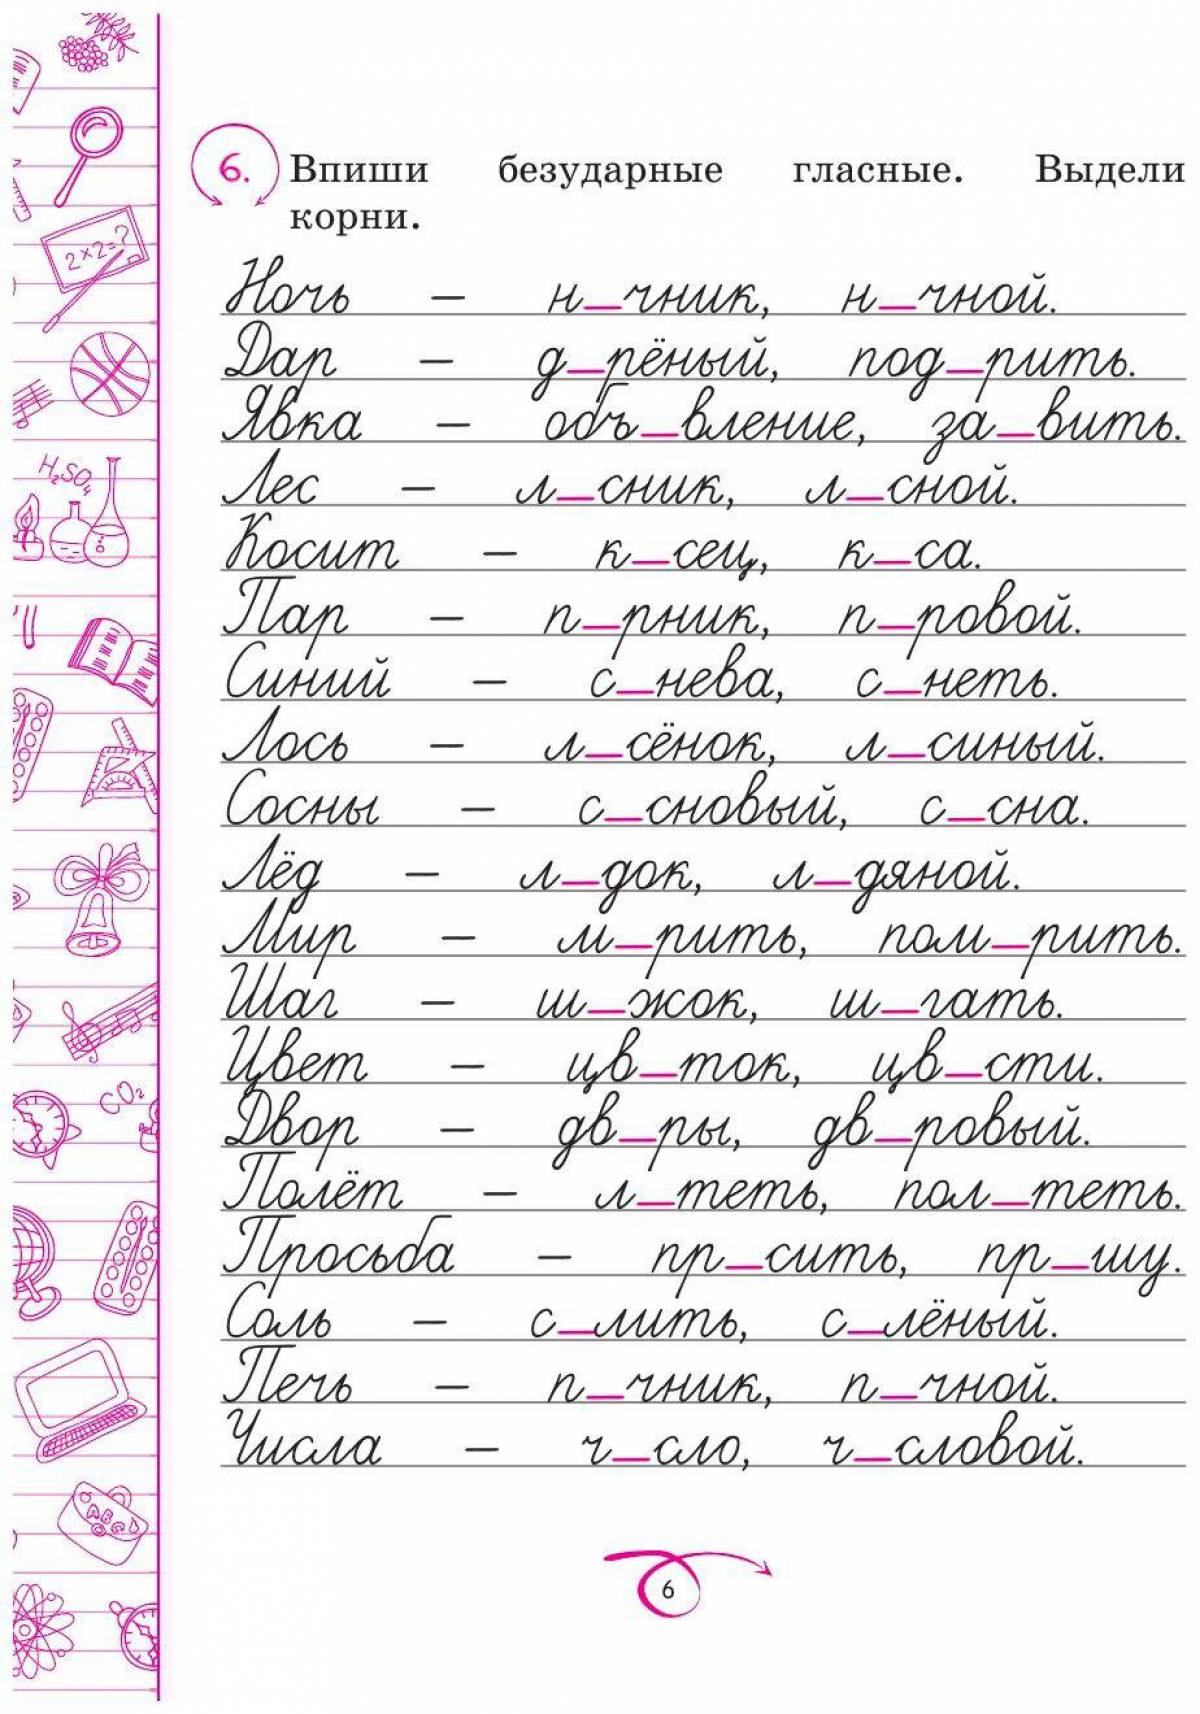 6. Впиши безударные гласные. Выдели
корни.
Ночь – н_чник, н_чной.
Дар – д_рёный, под_рить.
Явка – объ_вление, за_вить.
Лес – л_сник, л_сной.
Косит – к_сец, к_са.
Пар – п_рник, п_ровой.
Синий – с_нева, с_неть.
Лось – л_сёнок, л_синый.
Сосны – с_сновый, с_сна.
Лёд – л_док, л_дяной.
Мир – м_рить, пом_рить.
Шаг – ш_жок, ш_гать.
Цвет – цв_ток, цв_сти.
Двор – дв_ры, дв_ровый.
Полёт – л_теть, пол_теть.
Просьба – пр_сить, пр_шу.
Соль – с_лить, с_лёный.
Печь – п_чник, п_чной.
Числа – ч_сло, ч_словой.
6
2×2=?
H₂SO₄
CO₂
ABCD